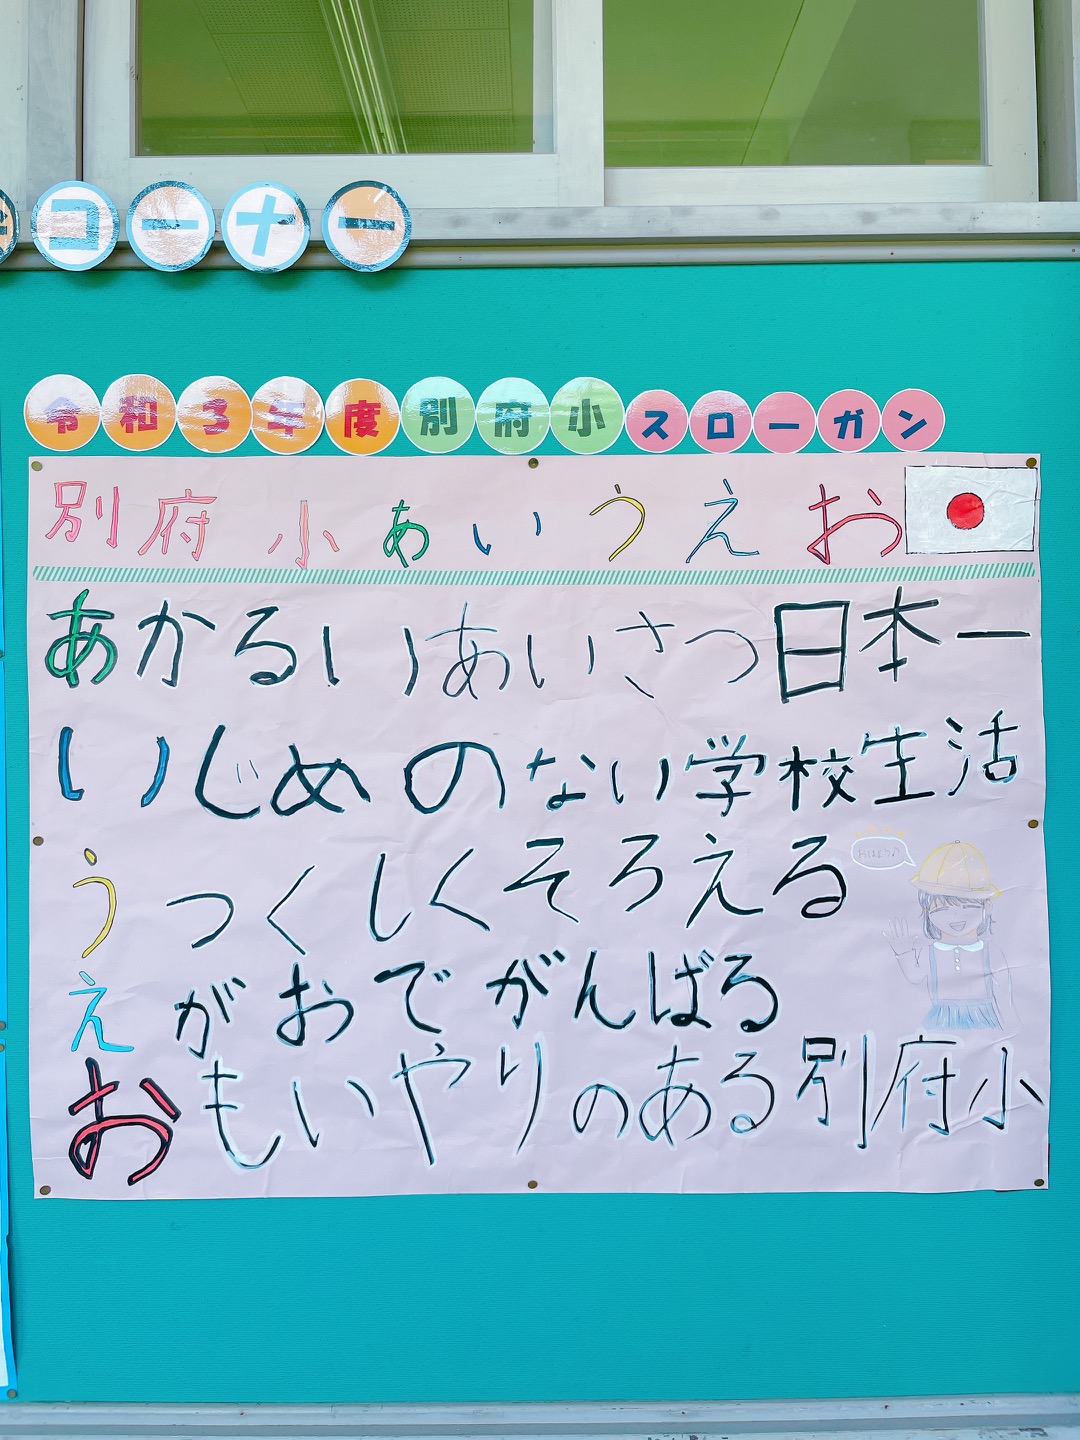 コーナー
令和3年度別府小スローガン
別府小あいうえお
あかるいあいさつ日本一
いじめのない学校生活
うつくしくそろえる
えがおでがんばる
おもいやりのある別府小